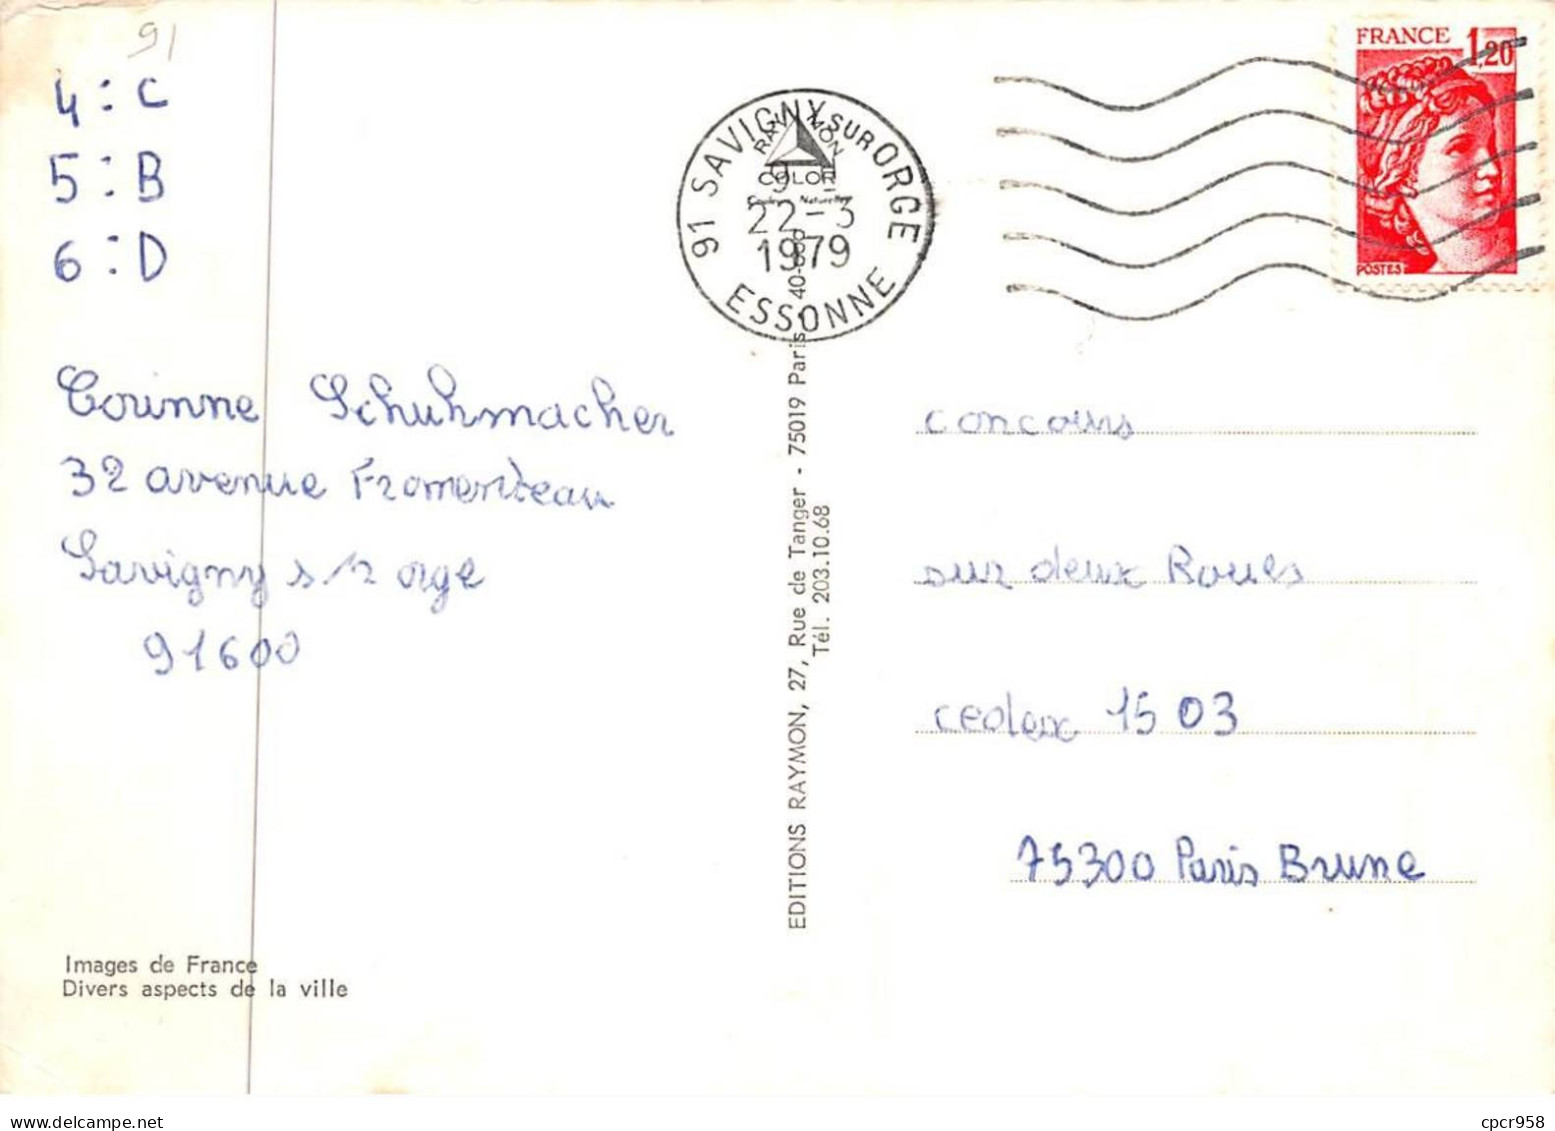 91
4 : C
5 : B
6 : D
Corinne Schuhmacher
32 avenue Fromenteau
Savigny s/r orge
91600
Images de France
Divers aspects de la ville
EDITIONS RAYMON, 27, Rue de Tanger - 75019 Paris
Tél. 203.10.68
RAYMON
COLOR
91 SAVIGNY SUR ORGE
22-3
1979
ESSONNE
FRANCE 1,20
POSTES
concours
sur deux Roues
cedex 1503
75300 Paris Brune
cpcr958